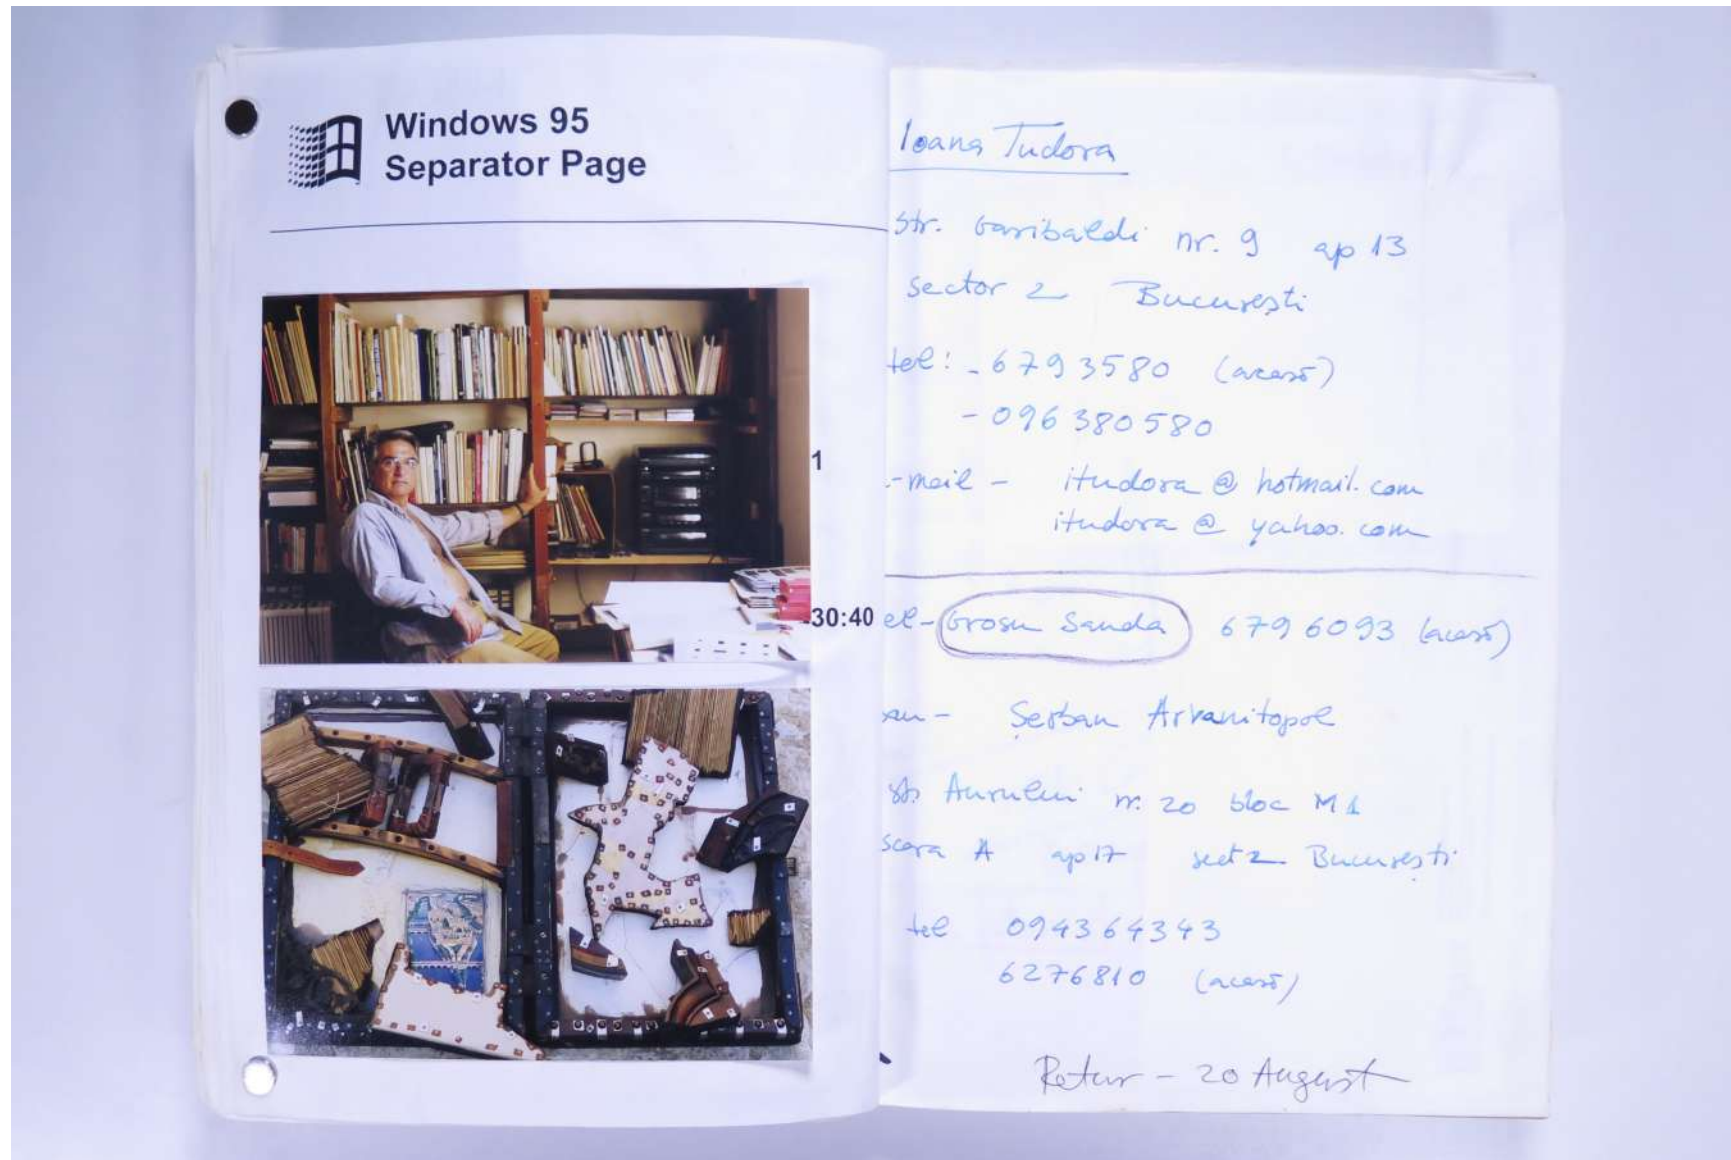 Windows 95
Separator Page
1
30:40
Ioana Tudora
str. Garibaldi nr. 9 ap 13
sector 2 București
tel: - 6793580 (acasă)
- 096 380580
-mail - itudora @ hotmail.com
itudora @ yahoo.com
el- Grosu Sanda 6796093 (acasă)
au - Șerban Arvanitopol
str. Aurului nr. 20 bloc M1
scara A ap 17 sect 2 București
tel 094364343
6276810 (acasă)
Retur - 20 August